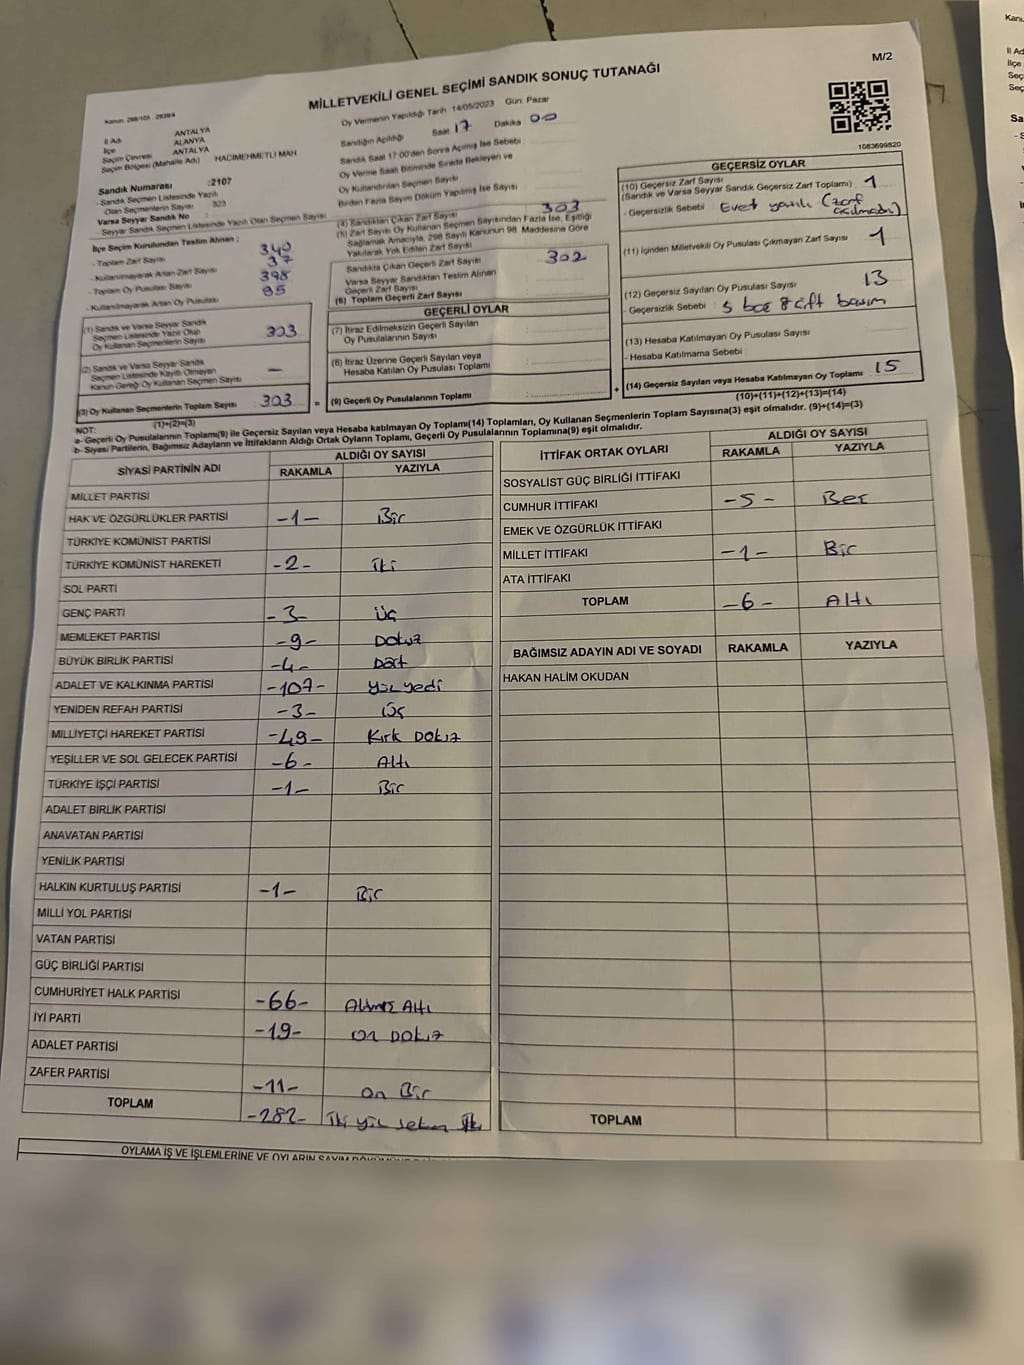 M/2
MİLLETVEKİLİ GENEL SEÇİMİ SANDIK SONUÇ TUTANAĞI
İl Adı ANTALYA
İlçe ALANYA
Seçim Çevresi ANTALYA
Seçim Bölgesi (Mahalle Adı) HACIMEHMETLİ MAH
Sandık Numarası :2107
- Sandık Seçmen Listesinde Yazılı
Olan Seçmenlerin Sayısı 323
Varsa Seyyar Sandık No :
- Seyyar Sandık Seçmen Listesinde Yazılı Olan Seçmen Sayısı
Oy Vermenin Yapıldığı Tarih 14/05/2023 Gün: Pazar
Sandığın Açıldığı Saat 17 Dakika 00
Sandık Saat 17:00'den Sonra Açılmış İse Sebebi :
Oy Verme Saati Bitiminde Sırada Bekleyen ve
Oy Kullandırılan Seçmen Sayısı :
Birden Fazla Sayım Döküm Yapılmış İse Sayısı :
1083699820
İlçe Seçim Kurulundan Teslim Alınan ;
- Toplam Zarf Sayısı 340
- Kullanılmayarak Artan Zarf Sayısı 37
- Toplam Oy Pusulası Sayısı 398
- Kullanılmayarak Artan Oy Pusulası 95
(1) Sandık ve Varsa Seyyar Sandık
Seçmen Listesinde Yazılı Olup
Oy Kullanan Seçmenlerin Sayısı 303
(2) Sandık ve Varsa Seyyar Sandık
Seçmen Listesinde Kayıtlı Olmayan
Kanun Gereği Oy Kullanan Seçmen Sayısı —
(3) Oy Kullanan Seçmenlerin Toplam Sayısı 303
(1)+(2)=(3)
(4) Sandıktan Çıkan Zarf Sayısı 303
(5) Zarf Sayısı Oy Kullanan Seçmen Sayısından Fazla İse, Eşitliği
Sağlamak Amacıyla, 298 Sayılı Kanunun 98. Maddesine Göre
Yakılarak Yok Edilen Zarf Sayısı :
Sandıkta Çıkan Geçerli Zarf Sayısı 302
Varsa Seyyar Sandıktan Teslim Alınan
Geçerli Zarf Sayısı
(6) Toplam Geçerli Zarf Sayısı
GEÇERLİ OYLAR
(7) İtiraz Edilmeksizin Geçerli Sayılan
Oy Pusulalarının Sayısı
(8) İtiraz Üzerine Geçerli Sayılan veya
Hesaba Katılan Oy Pusulası Toplamı
= (9) Geçerli Oy Pusulalarının Toplamı
GEÇERSİZ OYLAR
(10) Geçersiz Zarf Sayısı
(Sandık ve Varsa Seyyar Sandık Geçersiz Zarf Toplamı) 1
- Geçersizlik Sebebi Evet yazılı (zarf
açılmadı)
(11) İçinden Milletvekili Oy Pusulası Çıkmayan Zarf Sayısı 1
(12) Geçersiz Sayılan Oy Pusulası Sayısı 13
- Geçersizlik Sebebi 5 boş 8 çift basım
(13) Hesaba Katılmayan Oy Pusulası Sayısı
- Hesaba Katılmama Sebebi
+ (14) Geçersiz Sayılan veya Hesaba Katılmayan Oy Toplamı 15
(10)+(11)+(12)+(13)=(14)
NOT:
a- Geçerli Oy Pusulalarının Toplamı(9) ile Geçersiz Sayılan veya Hesaba katılmayan Oy Toplamı(14) Toplamları, Oy Kullanan Seçmenlerin Toplam Sayısına(3) eşit olmalıdır. (9)+(14)=(3)
b- Siyasi Partilerin, Bağımsız Adayların ve İttifakların Aldığı Ortak Oyların Toplamı, Geçerli Oy Pusulalarının Toplamına(9) eşit olmalıdır.
SİYASİ PARTİNİN ADI ALDIĞI OY SAYISI
RAKAMLA YAZIYLA
MİLLET PARTİSİ
HAK VE ÖZGÜRLÜKLER PARTİSİ -1- Bir
TÜRKİYE KOMÜNİST PARTİSİ
TÜRKİYE KOMÜNİST HAREKETİ -2- iki
SOL PARTİ
GENÇ PARTİ -3- üç
MEMLEKET PARTİSİ -9- Dokuz
BÜYÜK BİRLİK PARTİSİ -4- Dört
ADALET VE KALKINMA PARTİSİ -107- yüz yedi
YENİDEN REFAH PARTİSİ -3- Üç
MİLLİYETÇİ HAREKET PARTİSİ -49- Kırk Dokuz
YEŞİLLER VE SOL GELECEK PARTİSİ -6- Altı
TÜRKİYE İŞÇİ PARTİSİ -1- Bir
ADALET BİRLİK PARTİSİ
ANAVATAN PARTİSİ
YENİLİK PARTİSİ
HALKIN KURTULUŞ PARTİSİ -1- Bir
MİLLİ YOL PARTİSİ
VATAN PARTİSİ
GÜÇ BİRLİĞİ PARTİSİ
CUMHURİYET HALK PARTİSİ -66- Altmış Altı
İYİ PARTİ -19- on Dokuz
ADALET PARTİSİ
ZAFER PARTİSİ -11- on Bir
TOPLAM -282- iki yüz seksen iki
İTTİFAK ORTAK OYLARI ALDIĞI OY SAYISI
RAKAMLA YAZIYLA
SOSYALİST GÜÇ BİRLİĞİ İTTİFAKI
CUMHUR İTTİFAKI -5- Beş
EMEK VE ÖZGÜRLÜK İTTİFAKI
MİLLET İTTİFAKI -1- Bir
ATA İTTİFAKI
TOPLAM -6- Altı
BAĞIMSIZ ADAYIN ADI VE SOYADI RAKAMLA YAZIYLA
HAKAN HALİM OKUDAN
TOPLAM
OYLAMA İŞ VE İŞLEMLERİNE VE OYLARIN SAYIM